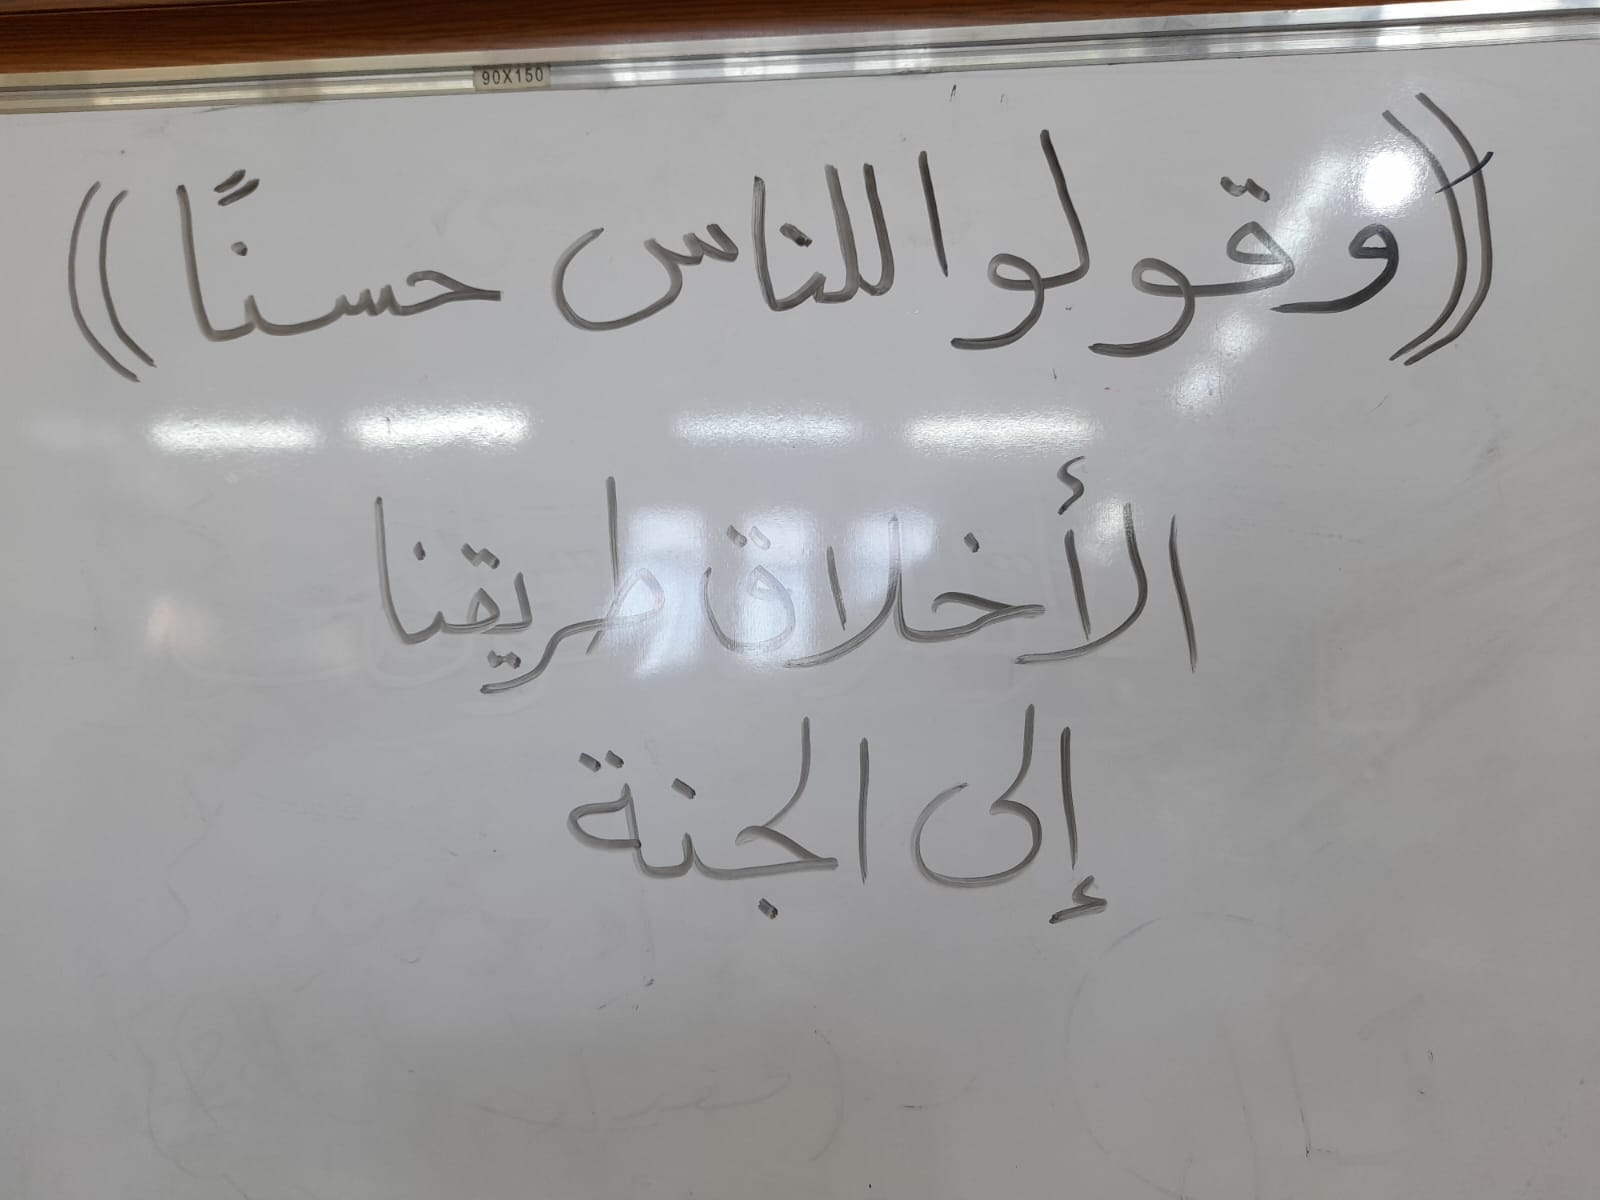 90X150
((وقولوا للناس حسنًا))
الأخلاق طريقنا
إلى الجنة